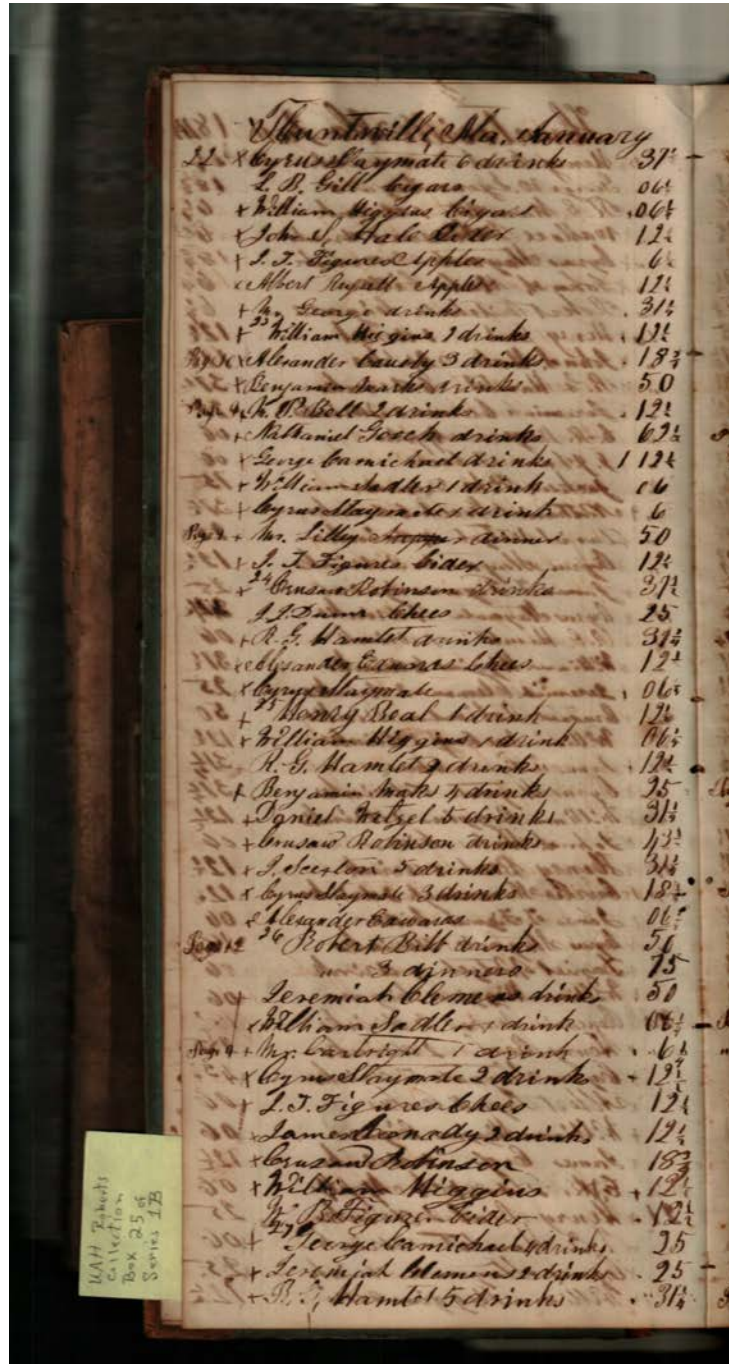 Huntsville, Ala. January
22 x Cyrus Slaymate 6 drinks 37½
L. B. Gill Cigars 06¼
+ William Higgins Cigars 06¼
+ John S. Hale Cider 12½
+ J. T. Figures Apples 6¼
Albert Apples 12½
+ Mr George drinks 31¼
+ 23 William Higgins 2 drinks 12½
x Alexander 3 drinks 18¾
x Benjamin drinks 50
+ P. Bell 2 drinks 12½
+ Nathaniel Gooch drinks 62½
x George Camichael drinks 1 12½
+ William Sadler 1 drink 06
+ Cyrus Slaymate 1 drink 6
+ Mr. Lilley dinner 50
+ J. T. Figures Cider 12½
+ 24 Crusaw Robinson drinks 37½
Chees 25
+ R. G. Hamlet drinks 31¼
x Alexander Edwards Chees 12½
x Cyrus Slaymate 06¼
+ 25 Henry Beal 1 drink 12½
+ William Higgins 1 drink 06¼
R. G. Hamlet 2 drinks 12½
+ Benjamin 4 drinks 25
+ Daniel Wetzel 5 drinks 31¼
+ Crusaw Robinson drinks 43¾
+ J. 5 drinks 31¼
x Cyrus Slaymate 3 drinks 18¾
Alexander Edwards 06¼
26 Robert Bibb drinks 50
3 dinners 75
+ Jeremiah Clemens drink 50
x William Sadler 1 drink 06¼
+ Mr. Cartright 1 drink 6¼
x Cyrus Slaymate 2 drinks 12½
+ J. T. Figures Chees 12½
+ James 2 drinks 12½
+ Crusaw Robinson 18¾
+ William Higgins 12½
B Figures Cider 12½
+ 27 George Camichael 4 drinks 25
+ Jeremiah Clemens 2 drinks 25
+ R. G. Hamlet 5 drinks 31¼
UAH Roberts
Collection
Box 25 of
Series 1B